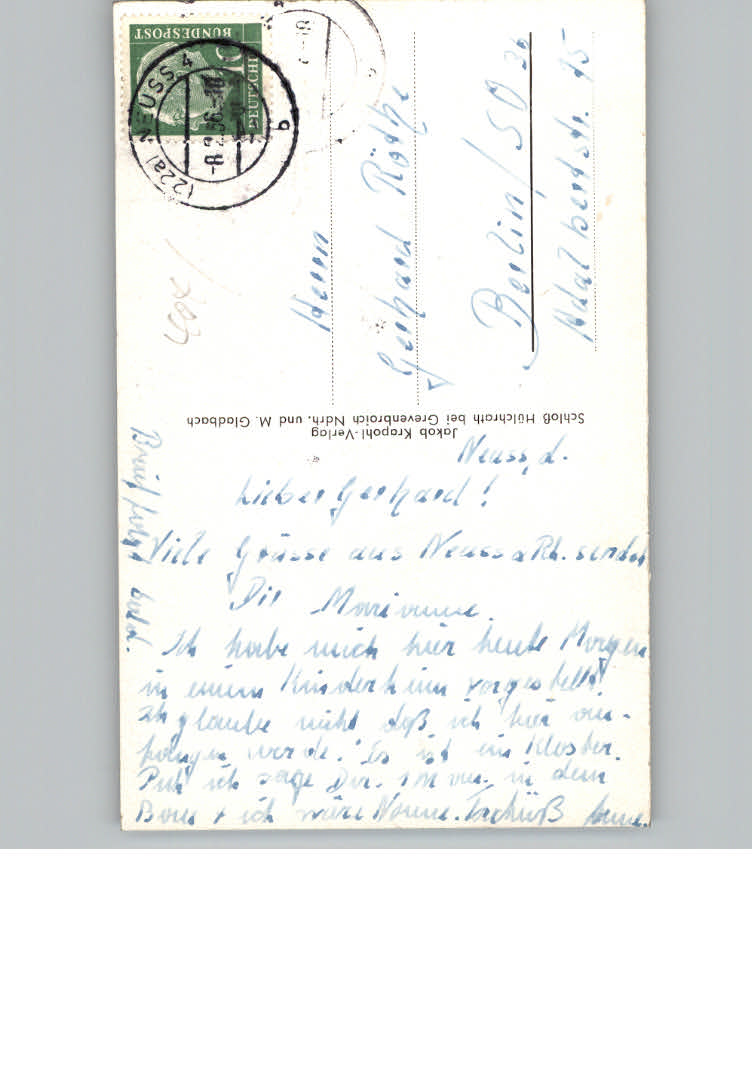 DEUTSCHE
BUNDESPOST
10
(22a) NEUSS 4
-8.2.56.-10
b
Herrn
Gerhard Röthe
Berlin / SO 36
Adalbertstr. 15
Jakob Krapohl-Verlag
Schloß Hülchrath bei Grevenbroich Ndrh. und M. Gladbach
Neuss, d.
Lieber Gerhard!
Viele Grüsse aus Neuss a Rh. sendet
Dir Marianne.
Ich habe mich hier heute Morgen
in einem Kinderheim vorgestellt.
Ich glaube nicht daß ich hier an-
fangen werde. Es ist ein Kloster.
ich sage Dir. in dem
+ ich wäre Nonne. Tschüß
Brief folgt bald.